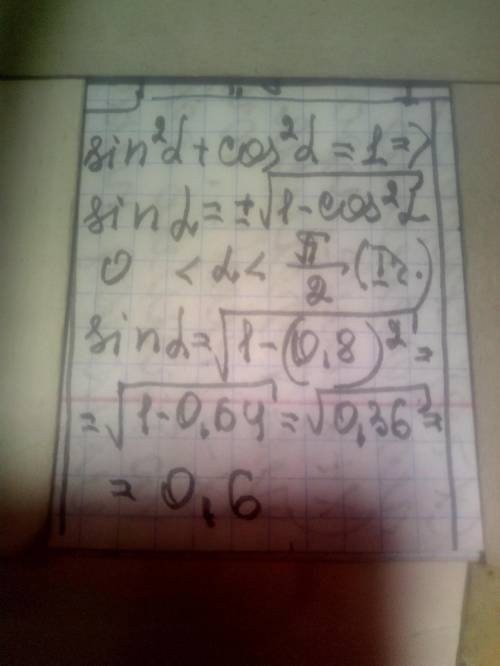 sin²α + cos²α = 1 =>
sin α = ±√1 - cos²α
0 < α < π/2 (I г.)
sin α = √1 - (0,8)² =
= √1 - 0,64 = √0,36 =
= 0,6